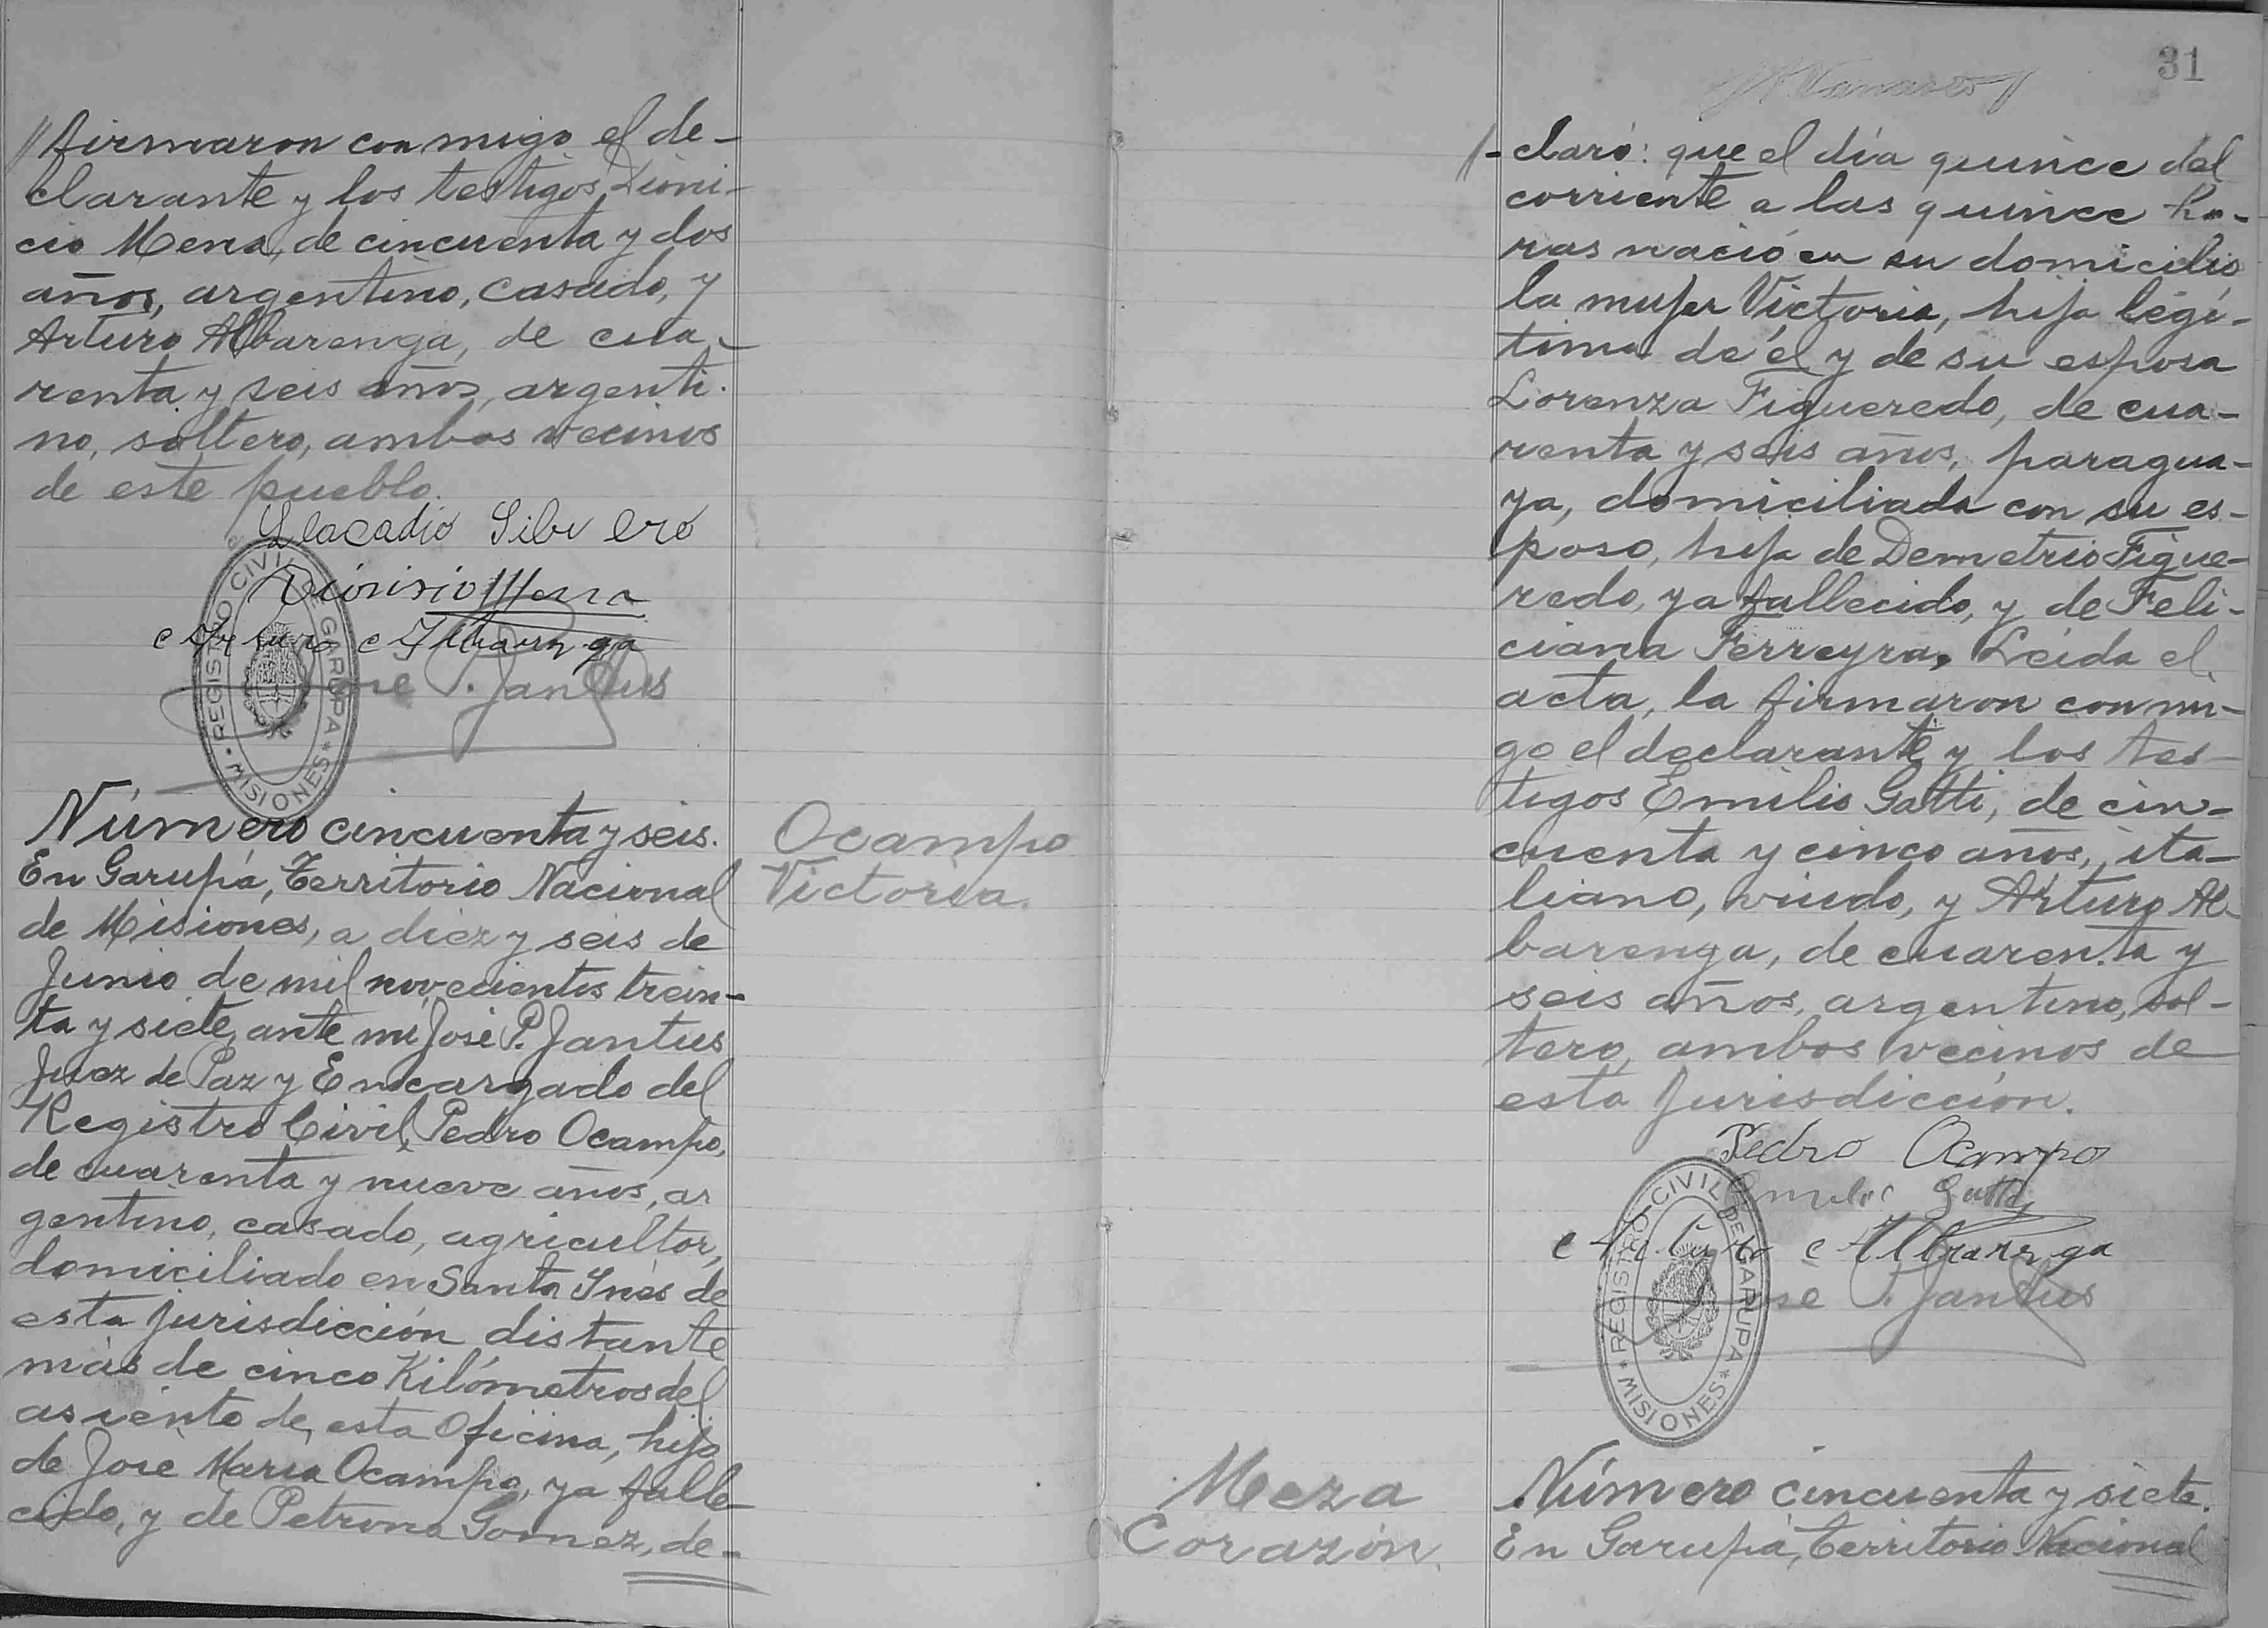 // firmaron conmigo el de-
clarante y los testigos Dioni-
cio Mena, de cincuenta y dos
años, argentino, casado, y
Arturo Albarenga, de cua-
renta y seis años, argenti-
no, soltero, ambos vecinos
de este pueblo.
Dionisio Mena
Arturo Albarenga
José P. Jantus
REGISTRO CIVIL DE GARUPA
* MISIONES *
Número cincuenta y seis.
En Garupá, Territorio Nacional
de Misiones, a diez y seis de
Junio de mil novecientos trein-
ta y siete, ante mi José P. Jantus
Juez de Paz y Encargado del
Registro Civil, Pedro Ocampo,
de cuarenta y nueve años, ar
gentino, casado, agricultor,
domiciliado en Santa Inés de
esta jurisdicción distante
más de cinco Kilómetros del
asiento de esta Oficina, hijo
de José María Ocampo, ya falle-
cido, y de Petrona Gomez, de-
Ocampo
Victoria.
31
//- claró: que el día quince del
corriente a las quince ho-
ras nació en su domicilio
la mujer Victoria, hija legí-
tima de él y de su esposa
Lorenza Figueredo, de cua-
renta y seis años, paragua-
ya, domiciliada con su es-
poso, hija de Demetrio Figue-
redo, ya fallecido, y de Feli-
ciana Ferreyra. Leída el
acta, la firmaron conmi-
go el declarante y los tes-
tigos Emilio Gatti, de cin-
cuenta y cinco años, ita-
liano, viudo, y Arturo Al-
barenga, de cuarenta y
seis años, argentino, sol-
tero, ambos vecinos de
esta Jurisdicción.
Pedro Ocampo
Emilio Gatti
Arturo Albarenga
José P. Jantus
REGISTRO CIVIL DE GARUPA
* MISIONES *
Meza
Corazón.
Número cincuenta y siete.
En Garupá, Territorio Nacional